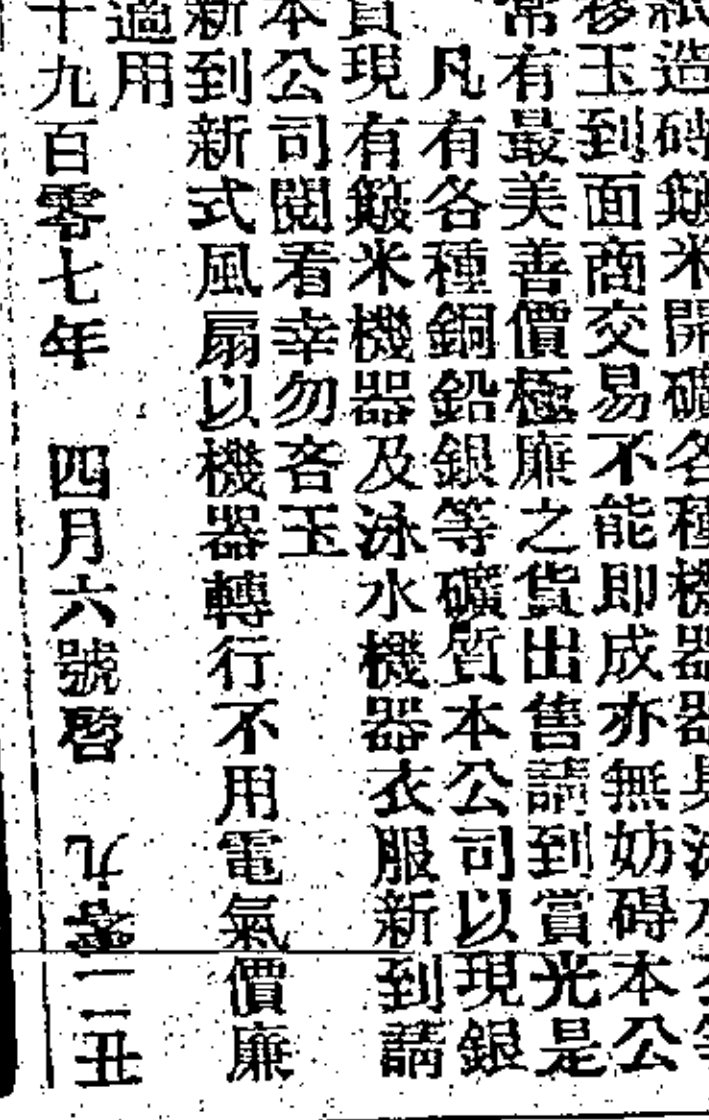 紙造磚鏾米開礦各種機器器具
移玉到面商交易不能即成亦無妨碍本公
常有最美善價極廉之貨出售請到賞光是
凡有各種銅鉛銀等礦質本公司以現銀
買現有鏾米機器及泳水機器衣服新到請
本公司閱看幸勿吝玉
新到新式風扇以機器轉行不用電氣價廉
適用
十九百零七年 四月六號啓 九零一二丑